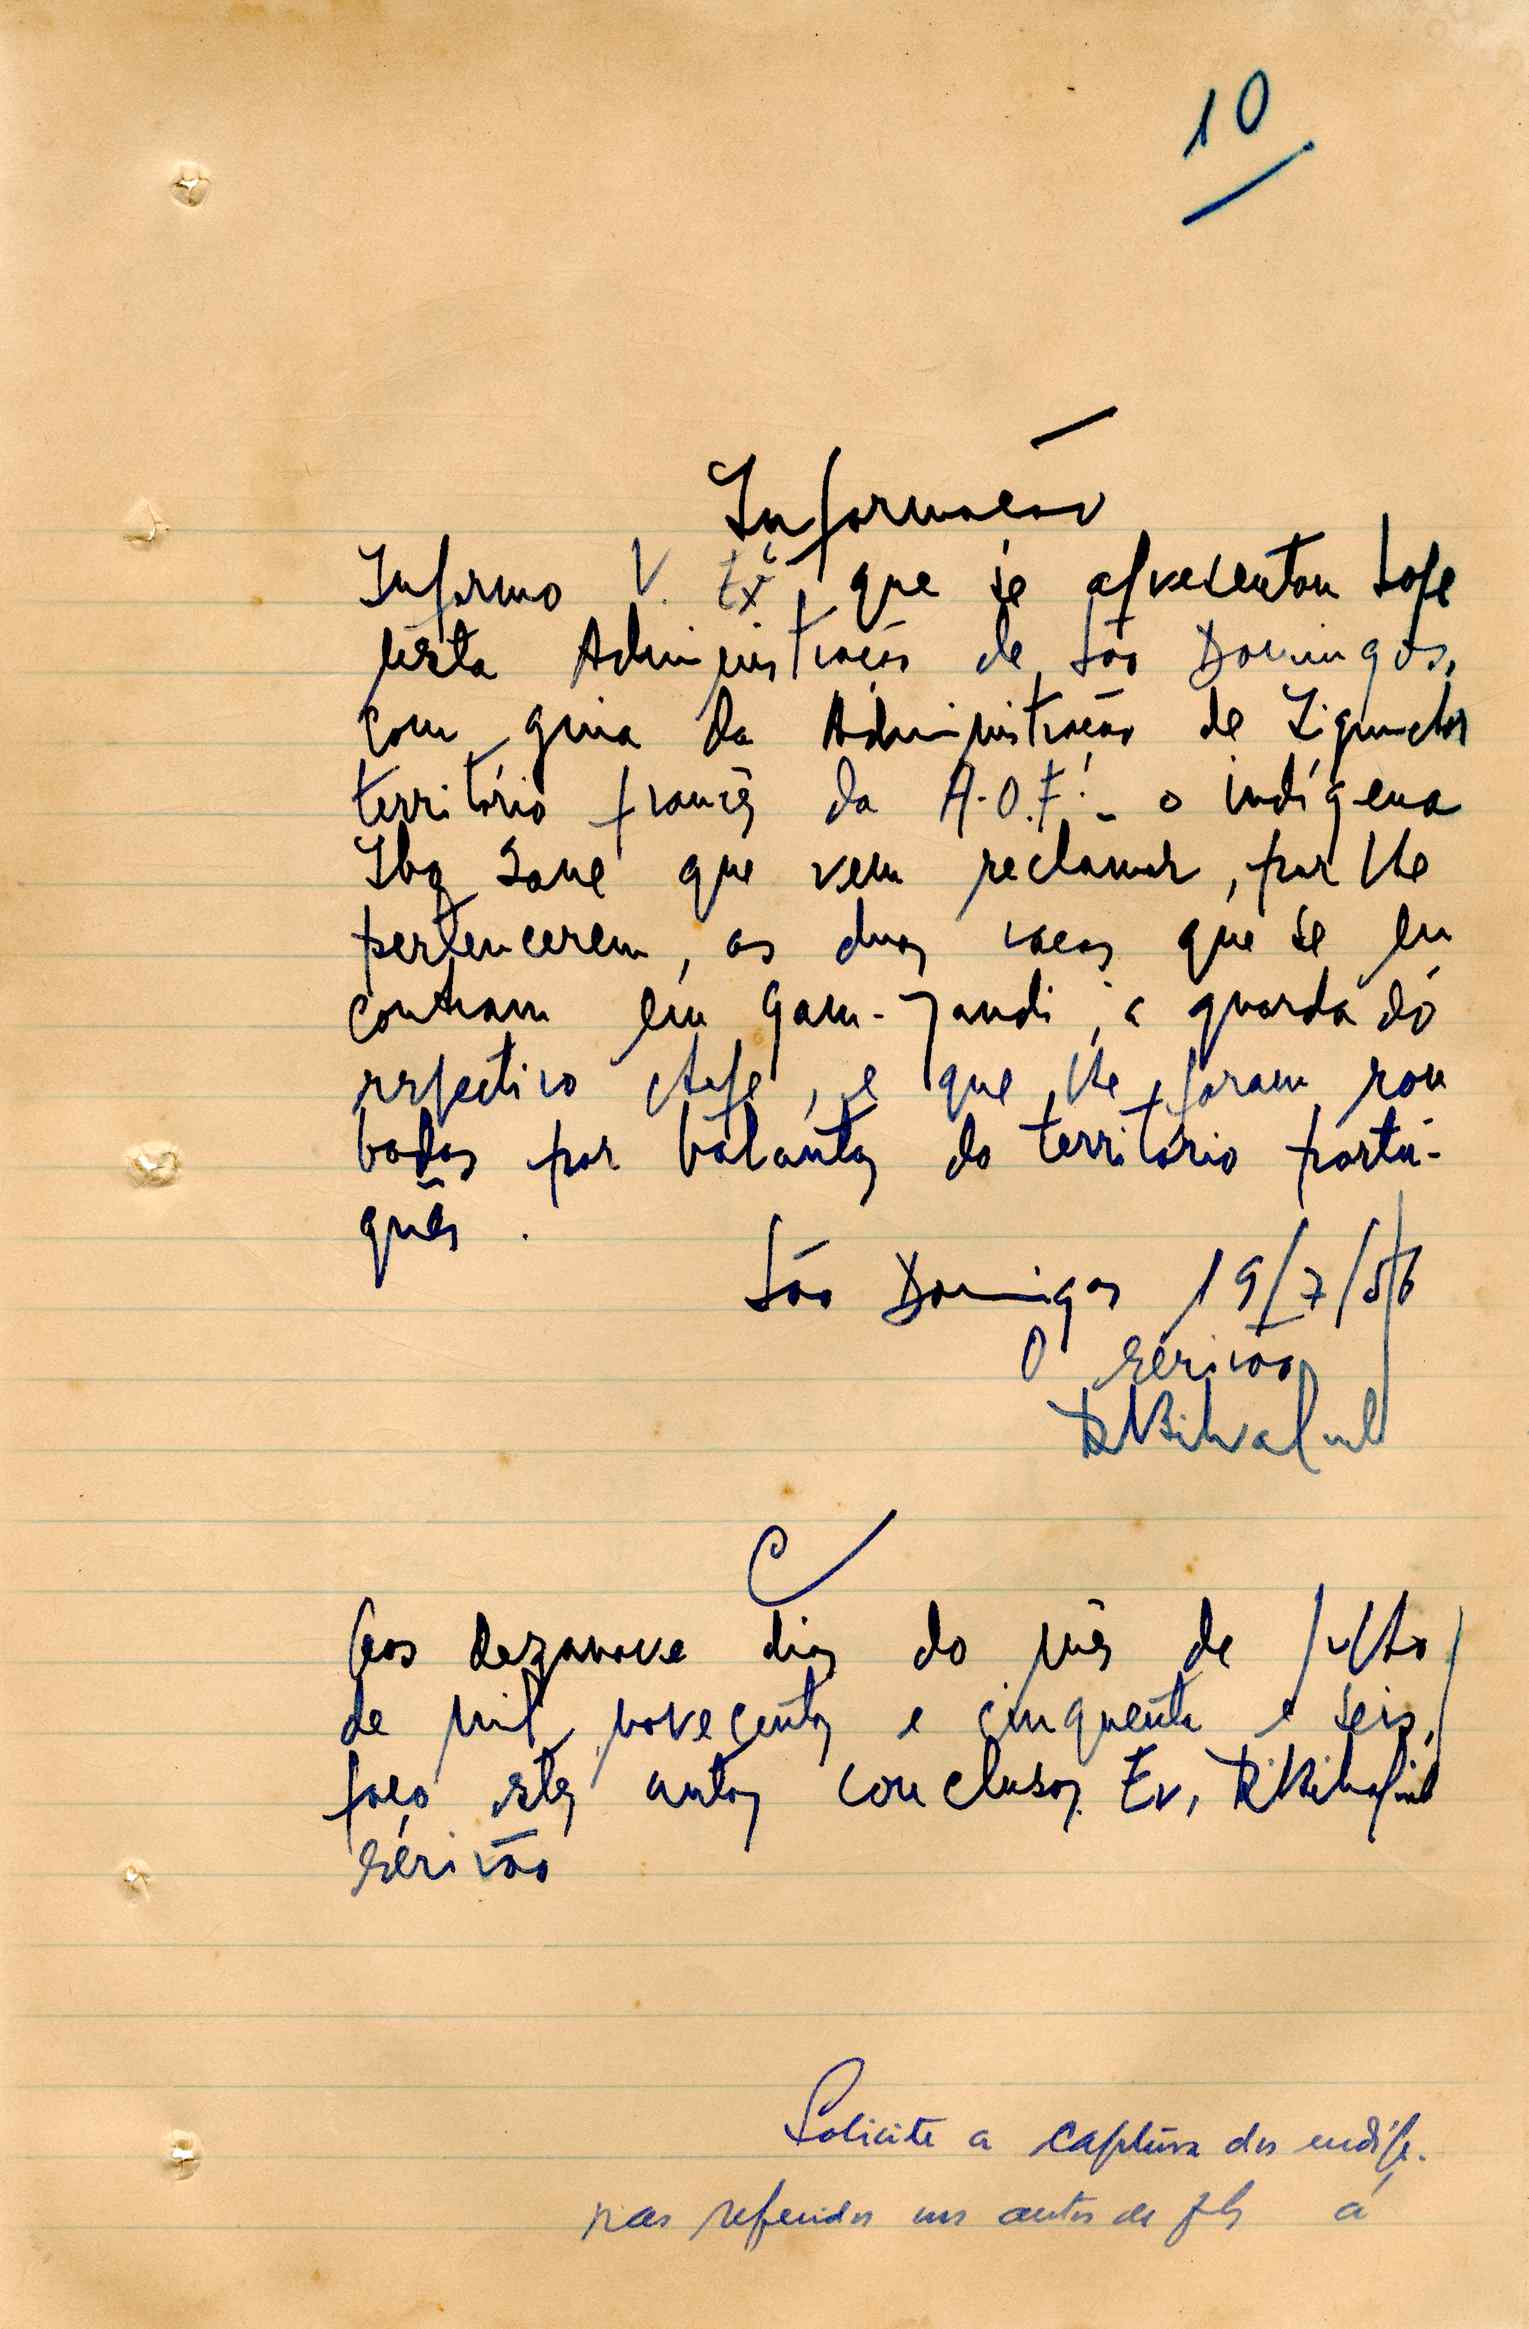 10
Informação
Informo V. Exª que se apresentou hoje
nesta Administração de São Domingos,
com guia da Administração de Ziguinchor
território francês da A.O.F. - o indígena
Sane que vem reclamar, por lhe
pertencerem, as duas vacas que se en
contram em Gam-Jandi, à guarda do
respectivo chefe, e que lhe foram rou
badas por balantas do território portu-
guês.
São Domingos 19/7/56
O escrivão
C
Aos dezanove dias do mês de julho
de mil novecentos e cinquenta e seis,
faço estes autos conclusos. Eu,
escrivão
Solicite a captura dos indíge-
nas referidos nos autos de fls a